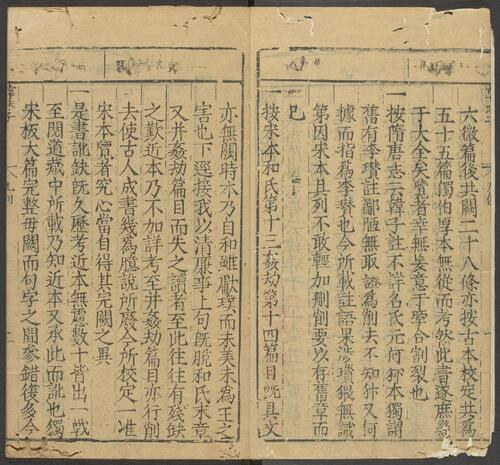 六微篇後共闕二十八條亦按古本校定共爲
五十五篇獨伯厚本無從而考然此書逐庶幾
于大全矣覽者幸無妄意于牽合割裂也
一按隋唐志云韓子註不詳名氏元何犿本獨謂
舊有李瓚註鄙陋無取證爲削去不知犿又何
據而指爲李瓚也今所載註語來涉猥狠無識
第因宋本具列不敢輕加刪削要以存舊章而
已
一按宋本和氏第十三姦劫第十四篇目旣具文
亦無闕時本乃自和雖獻璞而未美未爲王之
害也下逕接我以清廉事上句旣脱和氏末章
又并姦劫篇目而失之讀者至此往往有殘缺
之歎近本乃不加詳考至并姦劫篇目亦行削
去使古人成書幾爲臆說所廢今所校定一准
宋本覽者究心當自得其完闕之異
一是書訛缺旣久歷考近本無慮數十皆出一轍
至閱道藏中所載乃知近本又承此而訛也獨
宋板大篇完整毋闕而句字之間參錯復多今